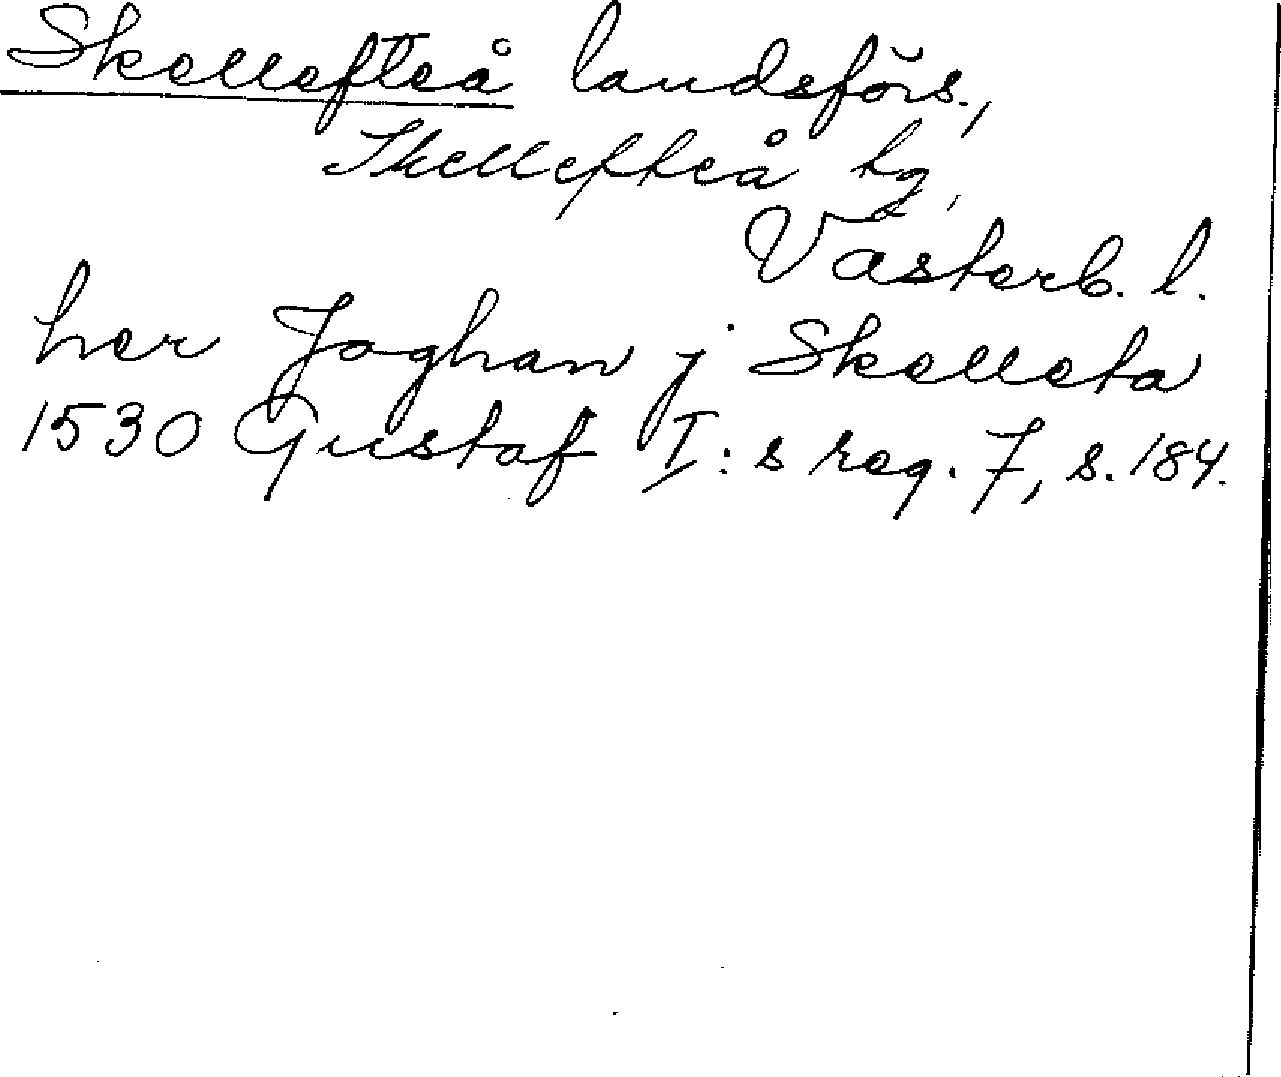 Skellefteå landsförs.,
Skellefteå tg,
Västerb. l.
her Joghan j Skelleta
1530 Gustaf I:s reg. 7, s. 184.